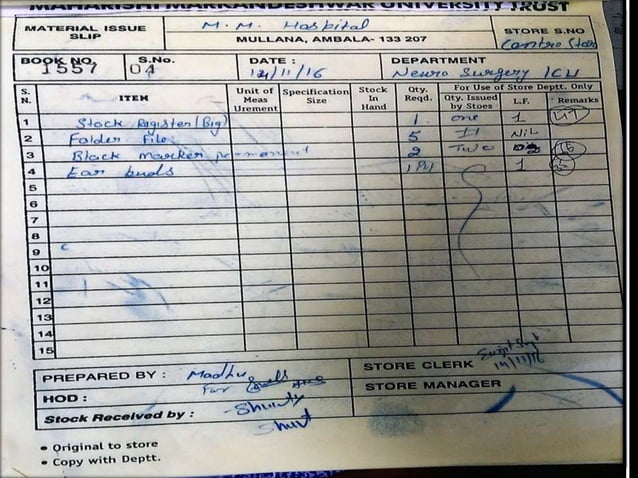 MAHARISHI MARKANDESHWAR UNIVERSITY TRUST
MATERIAL ISSUE SLIP
M. M. Hospital
MULLANA, AMBALA- 133 207
STORE S.NO
BOOK NO. 1557
S.No. 04
DATE : 14/11/16
DEPARTMENT
Neuro Surgery ICU
S. N. ITEM Unit of Meas Urement Specification Size Stock In Hand Qty. Reqd. For Use of Store Deptt. Only
Qty. Issued by Stoes L.F. Remarks
1 Stock Register (Big) 1 one 1 47
2 Folder File 5 Nil
3 Black marker permanent 2 Two 15
4 Ear buds 1 1
5
6
7
8
9
10
11
12
13
14
15
PREPARED BY : Madhu
STORE CLERK
14/11/16
HOD : For
STORE MANAGER
Stock Received by :
• Original to store
• Copy with Deptt.